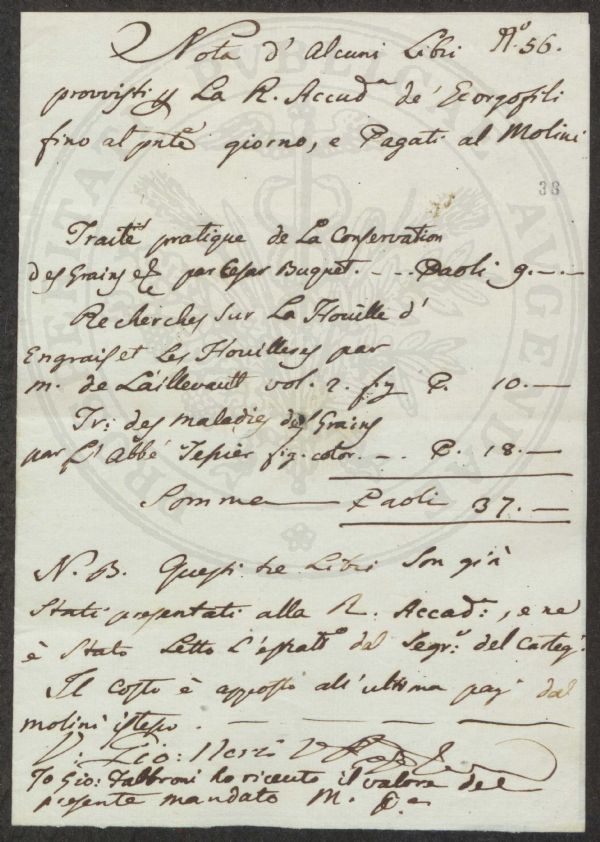 Nota d' Alcuni Libri N.º 56.
provvisti p La R. Accad.a de' Georgofili
fino al pnte giorno, e Pagati al Molini
38
Traité pratique de La Conservation
des Grains etc par Cesar Buquet. - - . Paoli 9. - -
Recherches sur La Houille d'
Engrais et Les Houilleres par
m. de Laillevault vol. 2. fig P. 10. -
Tr: des maladies des Grains
par L' Abbé Tessier fig. color. - . P. 18. -
Somma Paoli 37. -
N. B. Questi tre Libri son già
stati presentati alla R. Accad:a, e ne
è stato Letto L'estratto dal Segr:o del Carteg:
Il costo è apposto all' ultima pag: dal
molini istesso.
Gio:
Io Gio: Fabbroni ho ricevuto il valore del
presente mandato M. P.a
PROSPERITATI PUBLICAE AUGENDAE